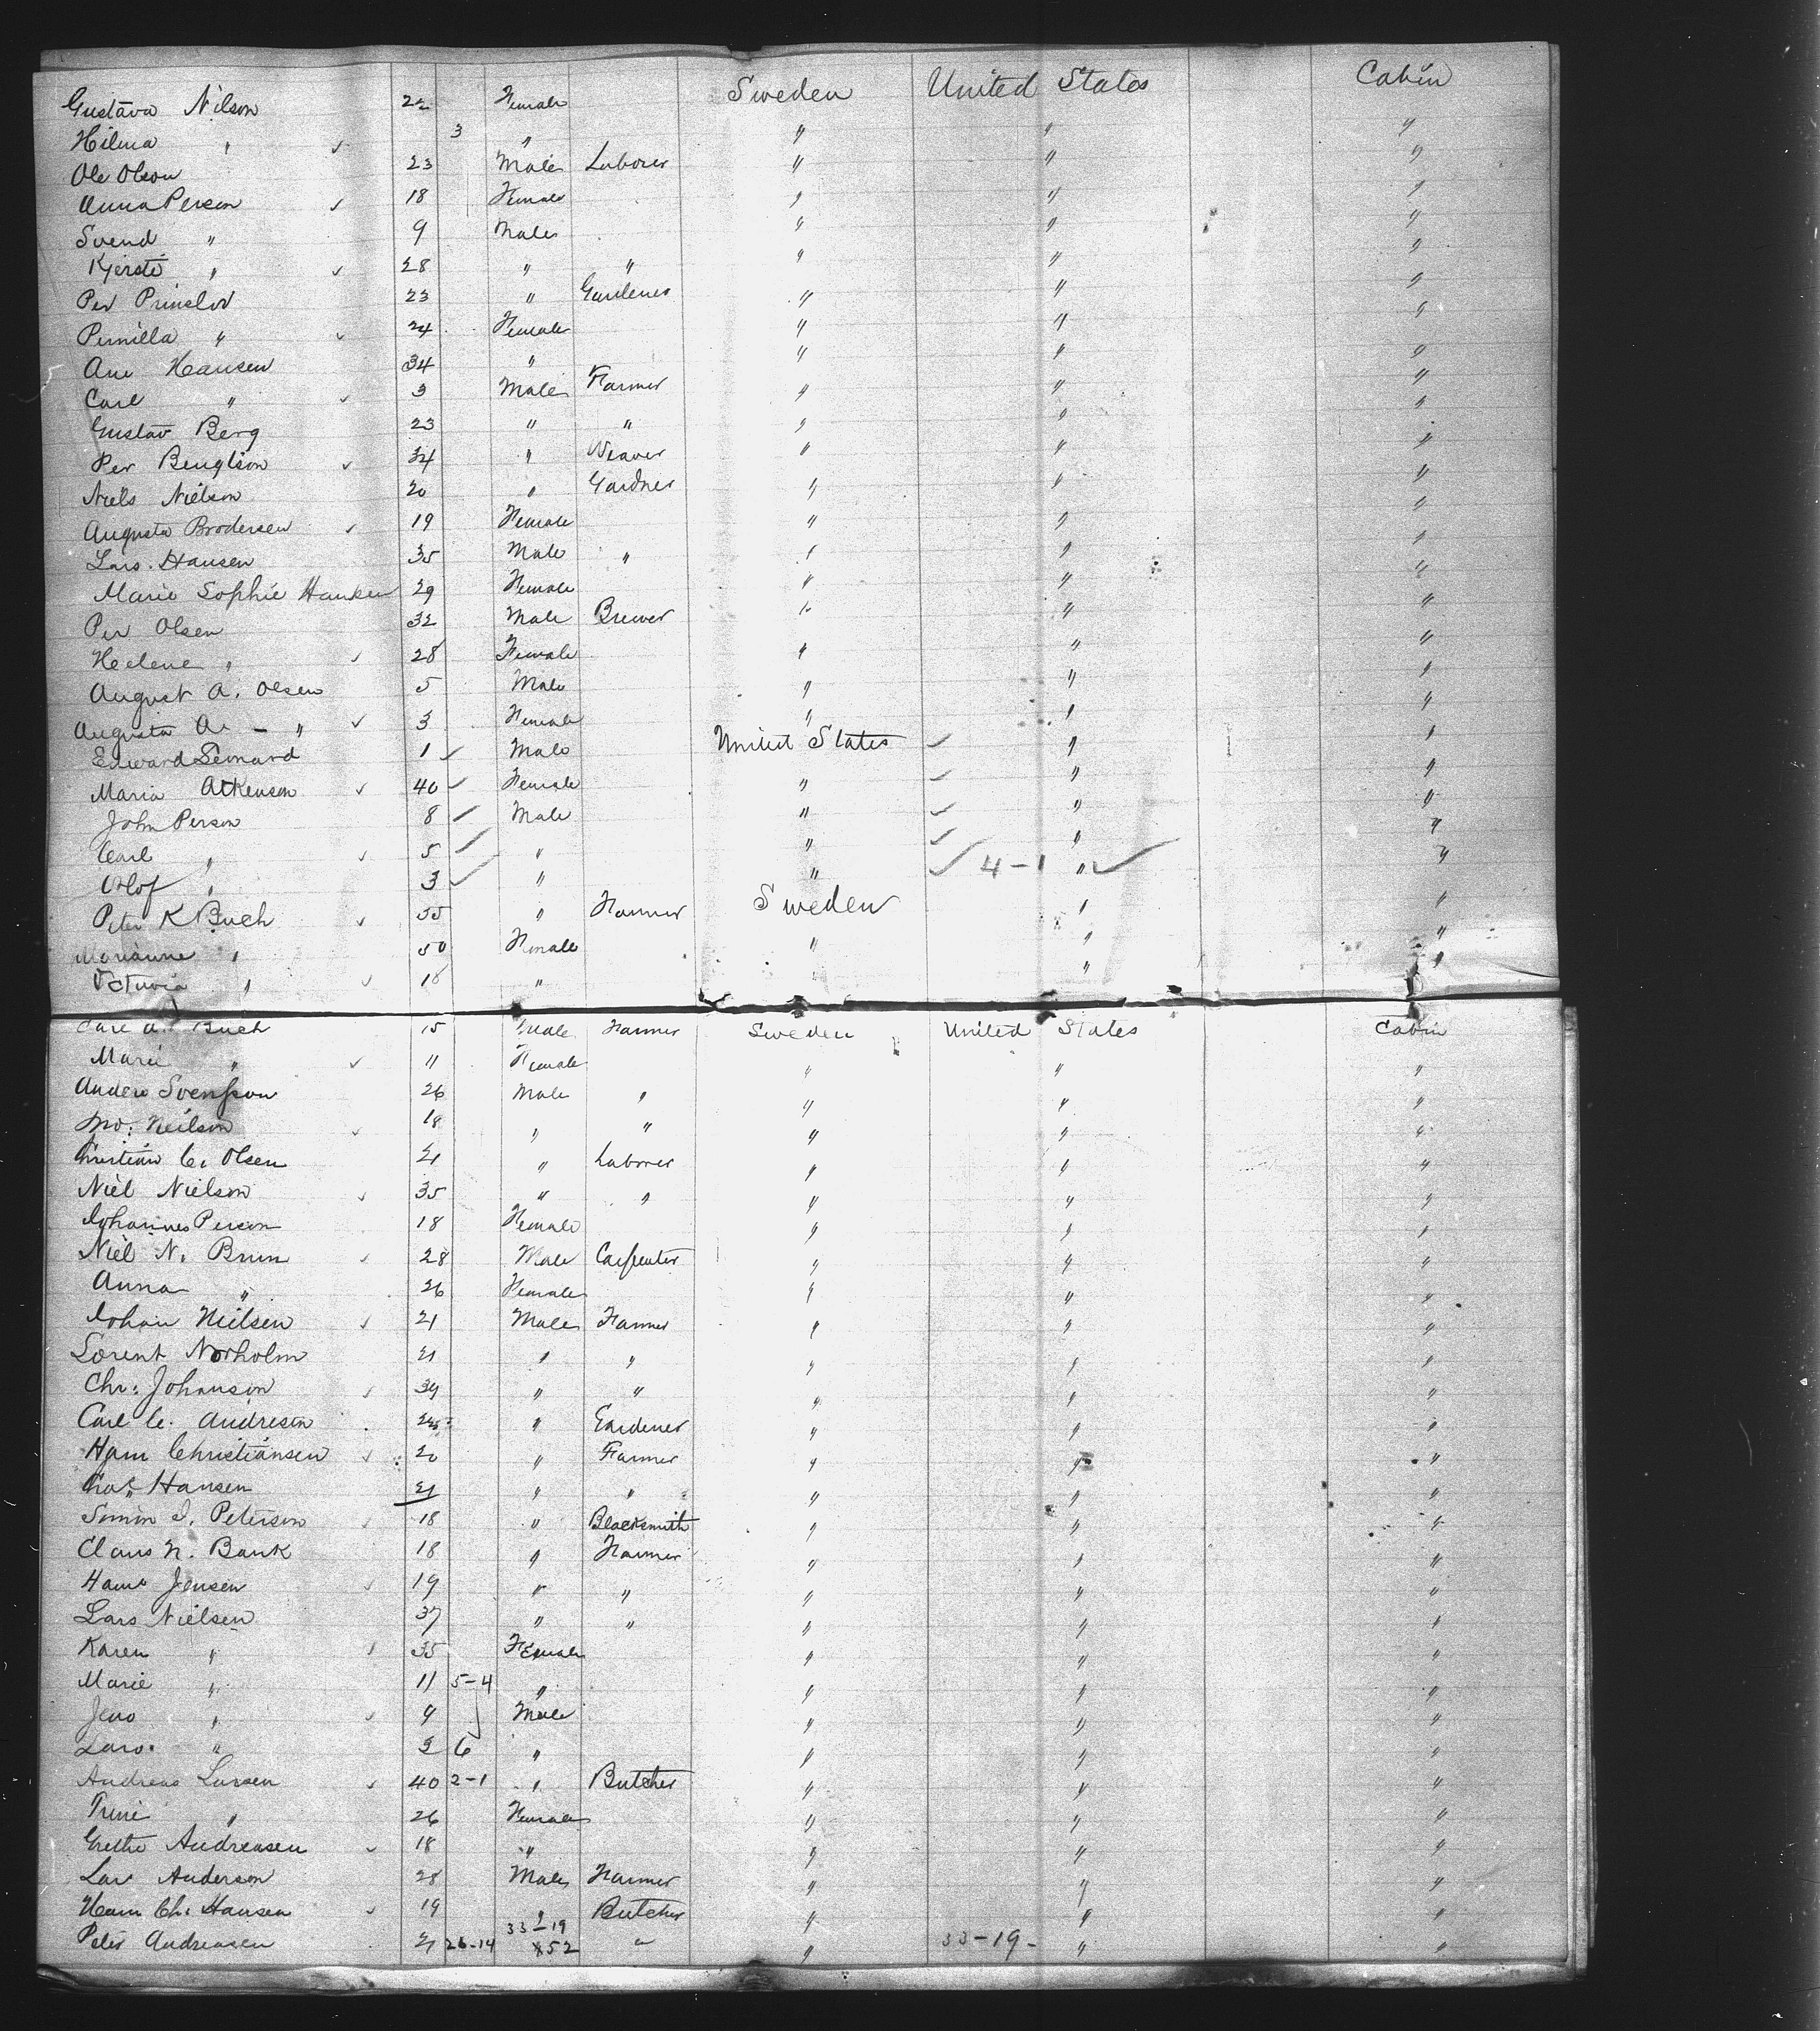 Gustava Nilson 22 Female Sweden United States Cabin
Hilma " 3 " " " "
Ole Olson 23 Male Laborer " " "
Anna Person 18 Female " " "
Svend " 9 Male " " "
Kjersti " 28 " " " " "
Per 23 " Gardener " " "
Pernilla " 24 Female " " "
Ane Hansen 34 " " " "
Carl " 3 Male Farmer " " "
Gustav Berg 23 " " " " "
Per Bengtson 34 " Weaver " " "
Niels Nielson 20 " Gardner " " "
Augusta Brodersen 19 Female " " "
Lars Hansen 35 Male " " " "
Marie Sophie Hansen 29 Female " " "
Per Olsen 32 Male Brewer " " "
Helene " 28 Female " " "
August A. Olsen 5 Male " " "
Augusta A. - " 3 Female " " "
Edward 1 Male United States " "
Maria Atkenson 40 Female " " "
John Person 8 Male " " "
Carl " 5 " " " "
Olof " 3 " " 4-1 " "
Peter K Buch 55 " Farmer Sweden " "
Marianne " 50 Female " " "
" 18 " " "
Carl A. Buch 15 Male Farmer Sweden United States Cabin
Marie " 11 Female " " "
Anders Svensson 26 Male " " " "
Neilson 18 " " " " "
Christian C. Olsen 21 " Laborer " " "
Niel Nielson 35 " " " " "
Johannes Person 18 Female " " "
Niel N. Brun 28 Male Carpenter " " "
Anna " 26 Female " " "
Johan Nielsen 21 Male Farmer " " "
Lorent Norholm 21 " " " " "
Chr: Johanson 39 " " " " "
Carl C. Andreson " Gardener " " "
Hans Christiansen 20 " Farmer " " "
Hansen 21 " " " " "
Simon I. Peterson 18 " Blacksmith " " "
Claus N. Bank 18 " Farmer " " "
Hans Jensen 19 " " " " "
Lars Nielsen 37 " " " " "
Karen " 35 Female " " "
Marie " 11 5-4 " " " "
Jens " 9 Male " " "
Lars " 3 6 " " " "
Andreas Larsen 40 2-1 " Butcher " " "
Trine " 26 Female " " "
Grethe Andreasen 18 " " " "
Lars Anderson 28 Male Farmer " " "
Hans Ch. Hansen 19 " Butcher " " "
33-19
Peter Andreasen 21 26-14 52 " " 33-19- " "